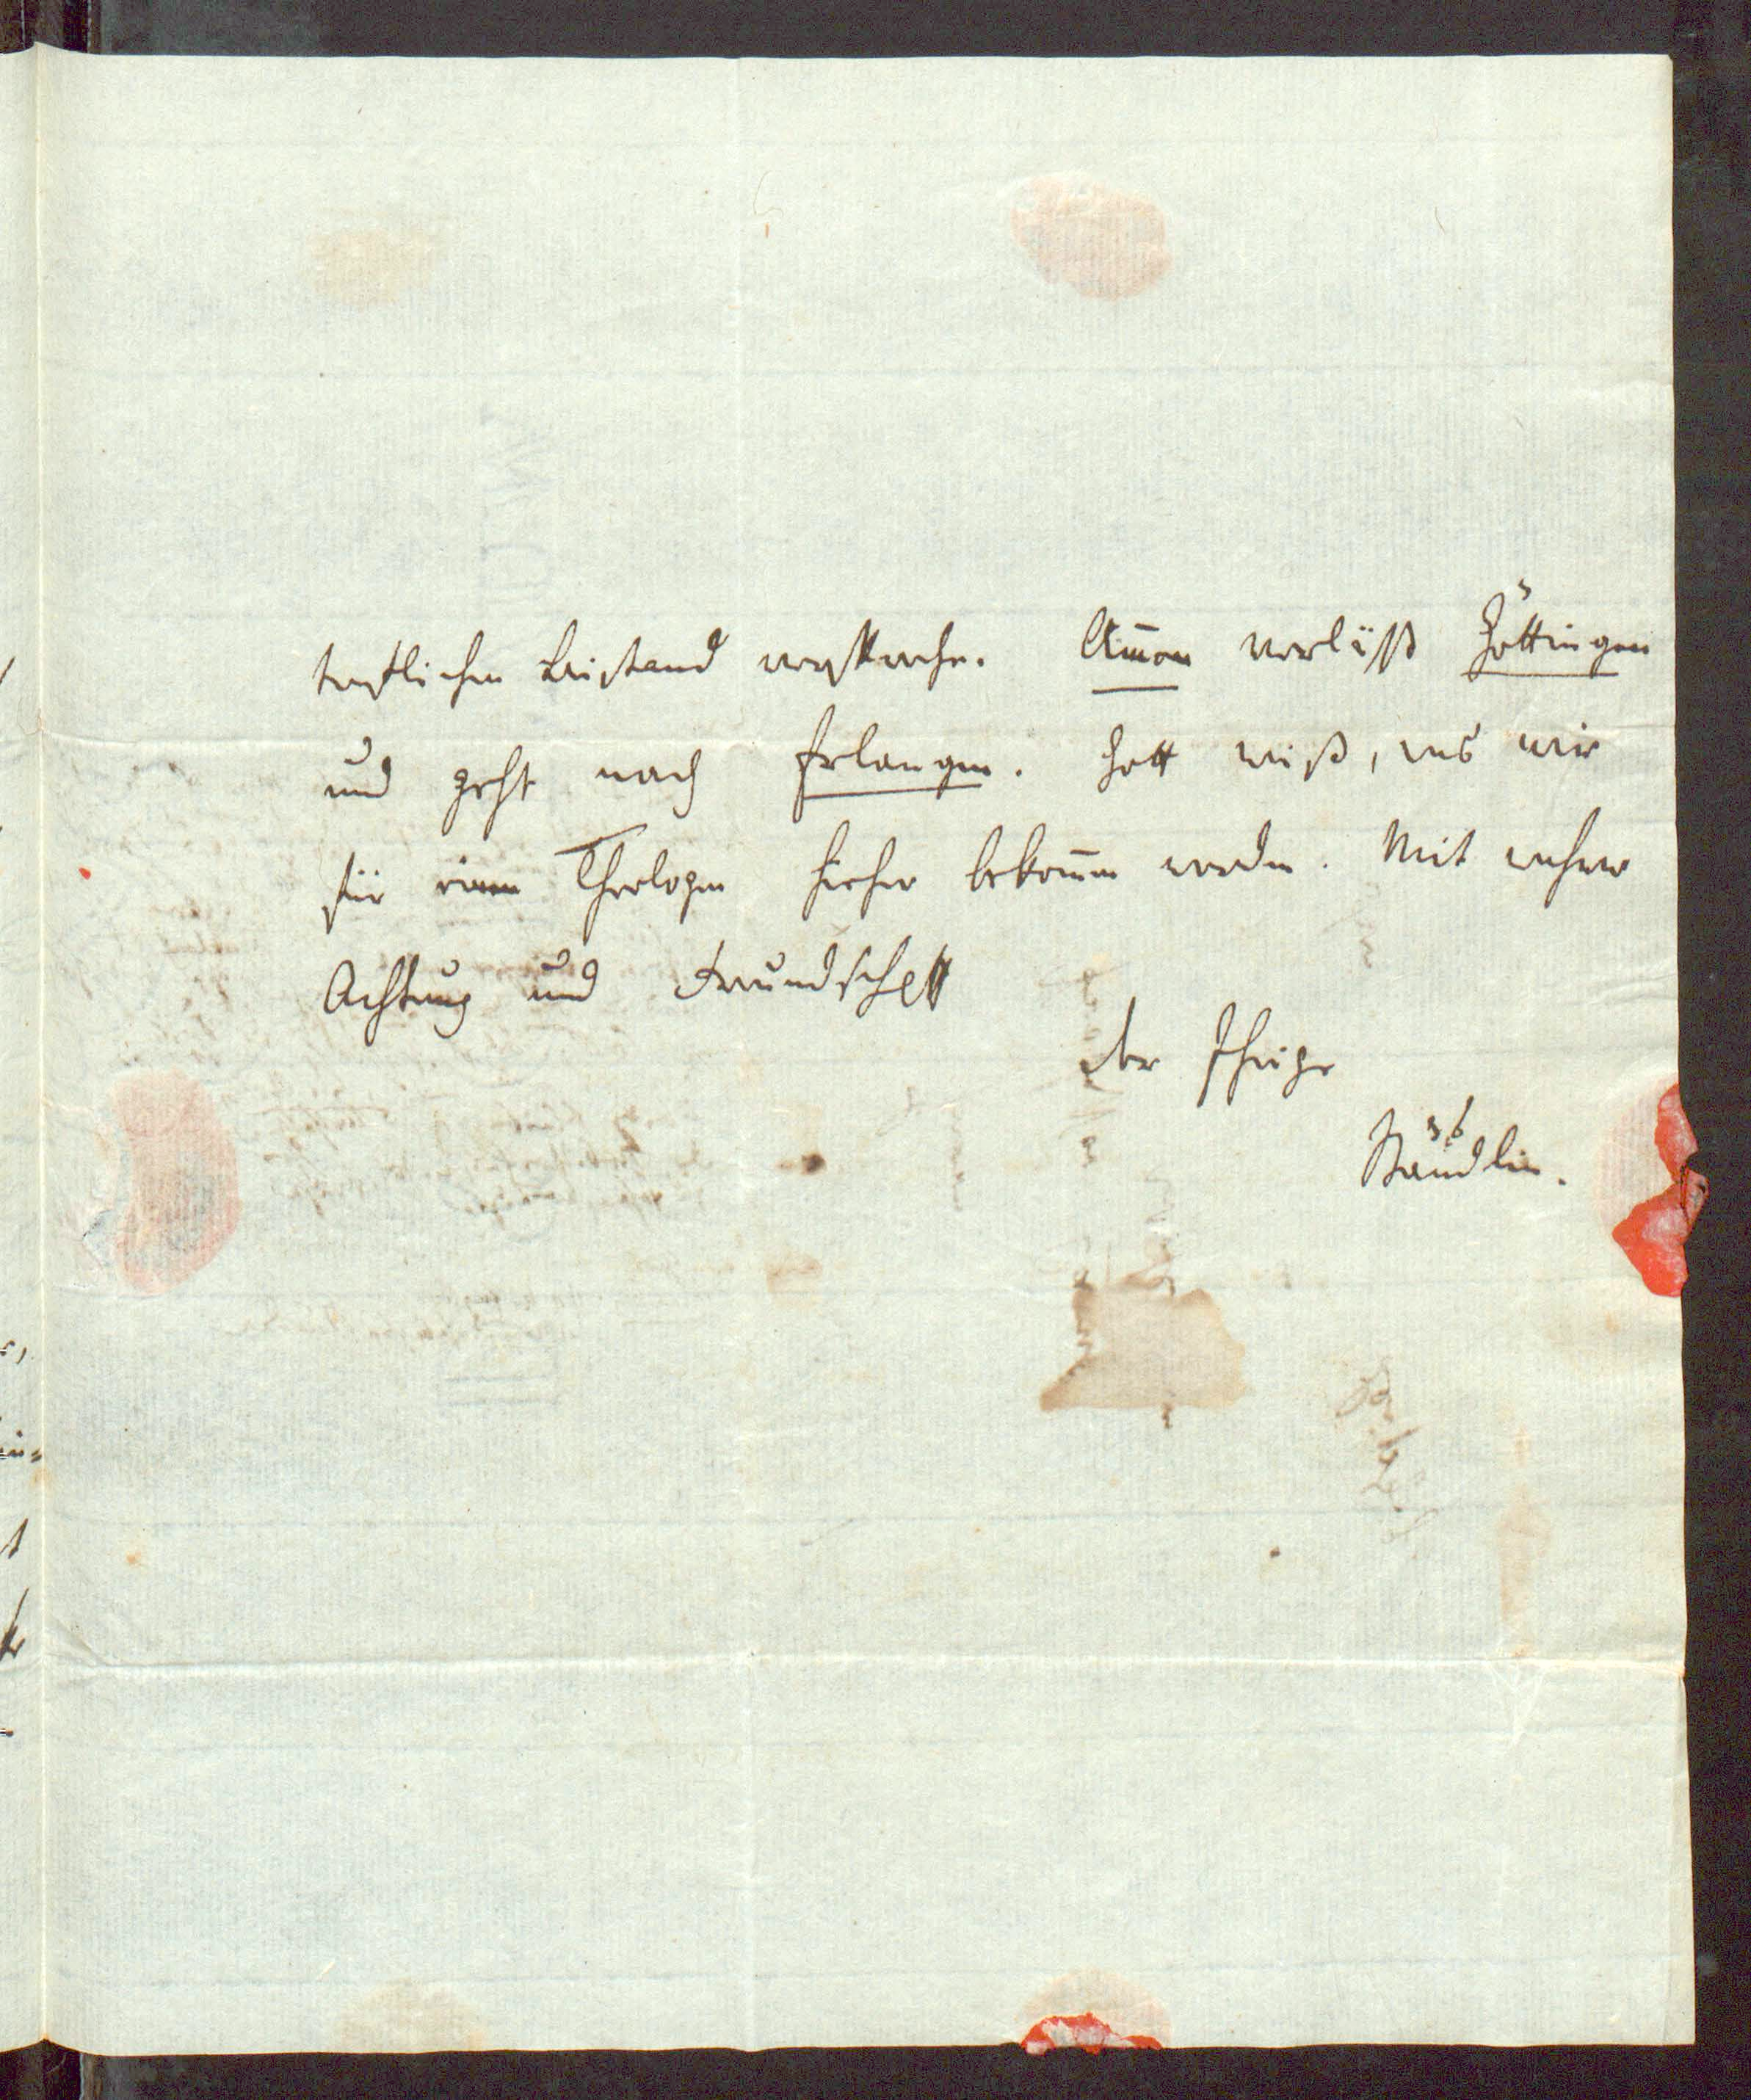 Beistand verspreche. Am̅on verläßt Göttingen
und geht nach Erlangen. Gott weiß, was wir
für einen Theologen hieher bekom̅en werden. Mit wahrer
Achtung und Freundschaft
der Ihrige
Stäudlin.